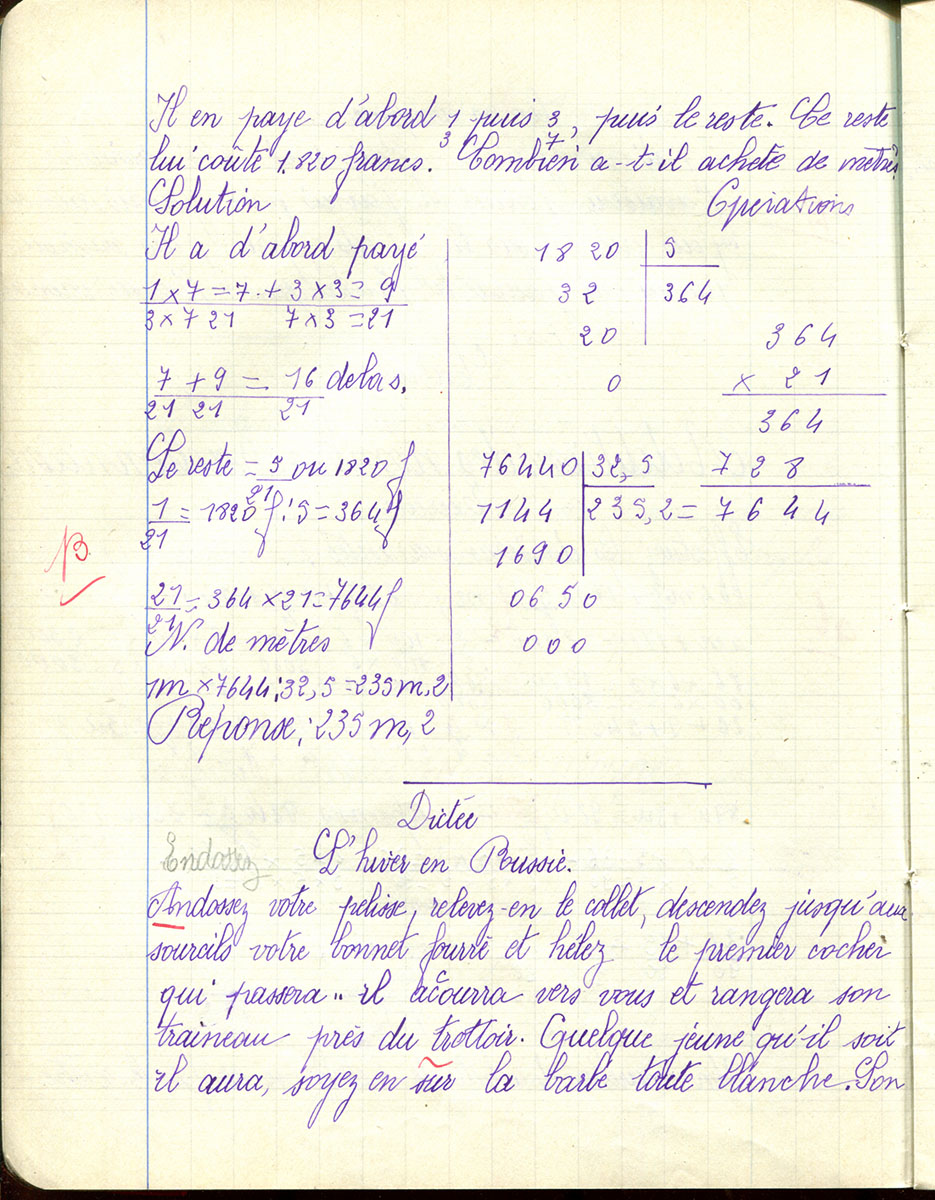 Il en paye d'abord 1/3 puis 3/7, puis le reste. Ce reste
lui coûte 1.820 francs. Combien a-t-il acheté de mètres?
Solution
Opérations
Il a d'abord payé
1 x 7 = 7 + 3 x 3 = 9
3 x 7 21 7 x 3 = 21
7 + 9 = 16 de las.
21 21 21
Le reste = 5/21 ou 1820 f
1/21 = 1820 f : 5 = 364 f
21/21 = 364 x 21 = 7644 f
N. de mètres
1m x 7644 : 32,5 = 235 m,2
Réponse : 235 m,2
1820 5
32 364
20
0
364
x 21
364
728
7644
76440 32,5
1144 235,2 =
1690
0650
000
B
Dictée
Endossez
L'hiver en Russie.
Andossez votre pelisse, relevez-en le collet, descendez jusqu'aux
sourcils votre bonnet fourré et hélez le premier cocher
qui passera.. il acourra vers vous et rangera son
traineau près du trottoir. Quelque jeune qu'il soit
il aura, soyez en sûr la barbe toute blanche. Son